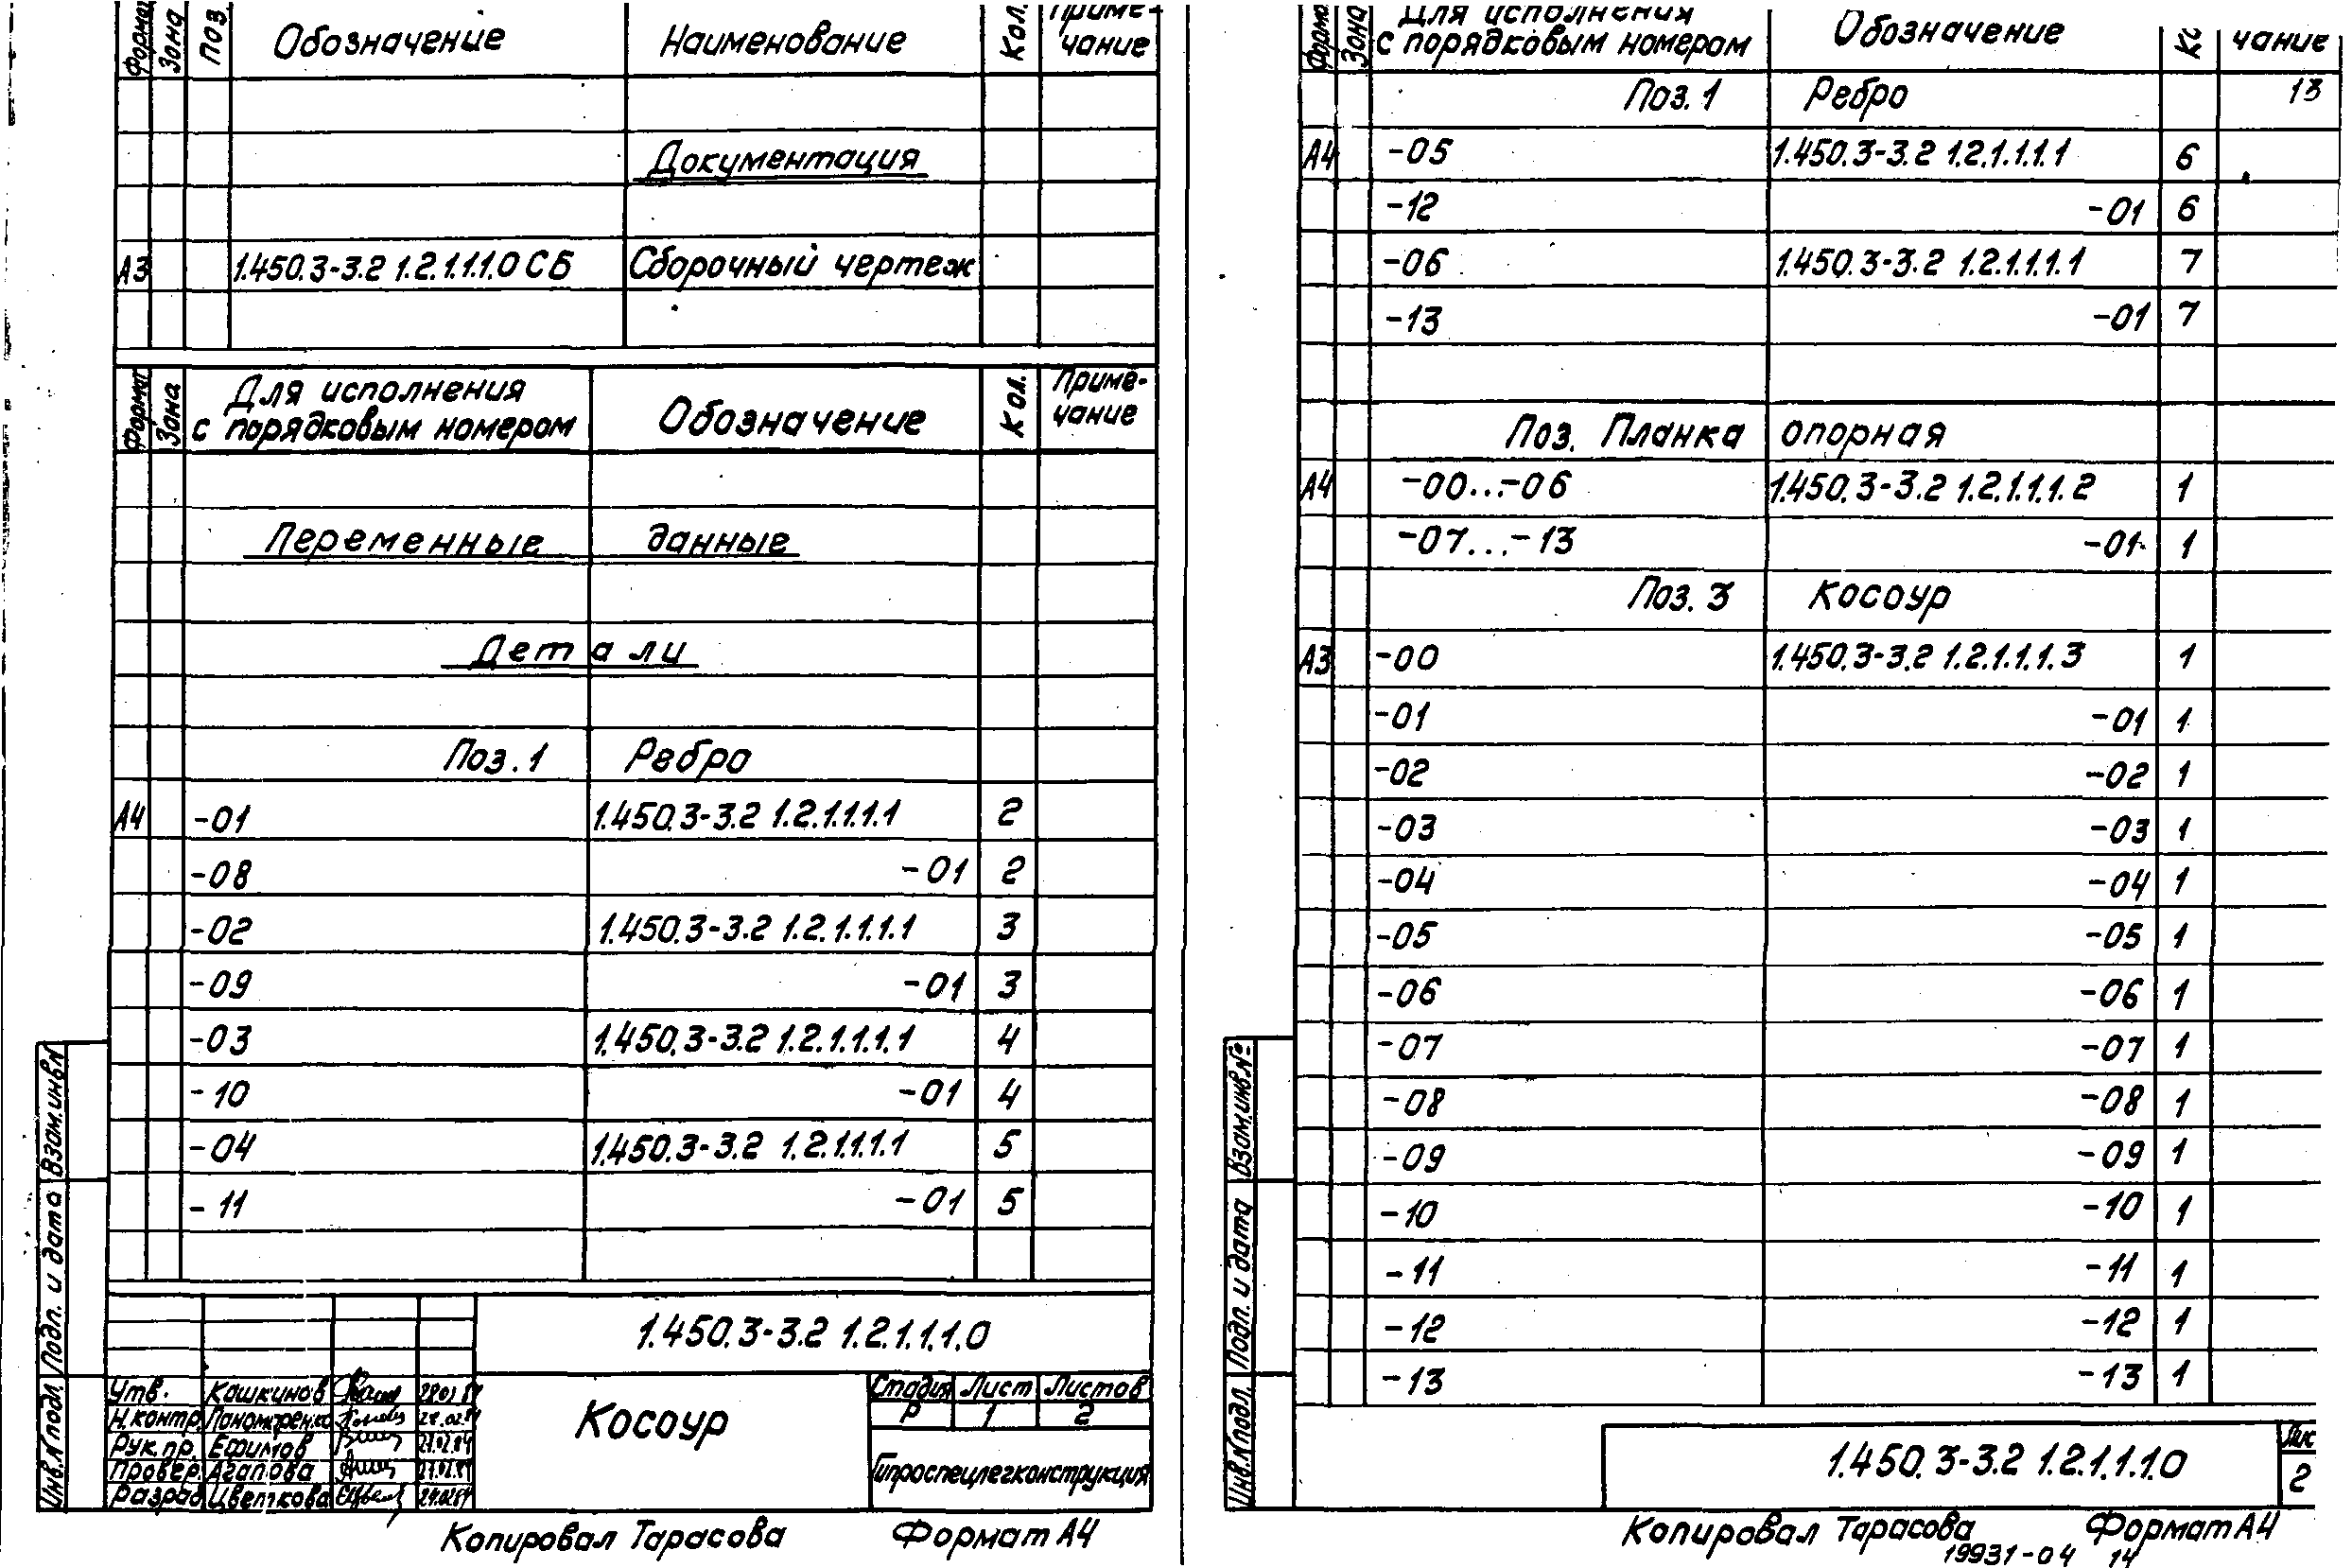 Зона Поз. Обозначение Наименование Кол. Приме-
чание
Документация
А3 1.450.3-3.2 1.2.1.1.1.0 СБ Сборочный чертеж
Формат Зона Для исполнения Обозначение Кол. Приме-
с порядковым номером чание
Переменные данные
Детали
Поз. 1 Ребро
А4 -01 1.450.3-3.2 1.2.1.1.1.1 2
-08 -01 2
-02 1.450.3-3.2 1.2.1.1.1.1 3
-09 -01 3
-03 1.450.3-3.2 1.2.1.1.1.1 4
-10 -01 4
-04 1.450.3-3.2 1.2.1.1.1.1 5
-11 -01 5
1.450.3-3.2 1.2.1.1.1.0
Утв. Кашкинов
Н.контр. Пономаренко
Рук.пр. Ефимов
Провер. Агапова
Разраб. Цветкова
Косоур
Стадия Лист Листов
Р 1 2
Гипроспецлегконструкция
Инв.№подл. Подп. и дата Взам.инв.№
Копировал Тарасова Формат А4
Зона Для исполнения Обозначение
с порядковым номером чание
Поз. 1 Ребро 13
А4 -05 1.450.3-3.2 1.2.1.1.1.1 6
-12 -01 6
-06 1.450.3-3.2 1.2.1.1.1.1 7
-13 -01 7
Поз. Планка опорная
А4 -00...-06 1.450.3-3.2 1.2.1.1.1.2 1
-07...-13 -01 1
Поз. 3 Косоур
А3 -00 1.450.3-3.2 1.2.1.1.1.3 1
-01 -01 1
-02 -02 1
-03 -03 1
-04 -04 1
-05 -05 1
-06 -06 1
-07 -07 1
-08 -08 1
-09 -09 1
-10 -10 1
-11 -11 1
-12 -12 1
-13 -13 1
Инв.№подл. Подп. и дата Взам.инв.№
1.450.3-3.2 1.2.1.1.1.0
2
Копировал Тарасова Формат А4
19931-04 14